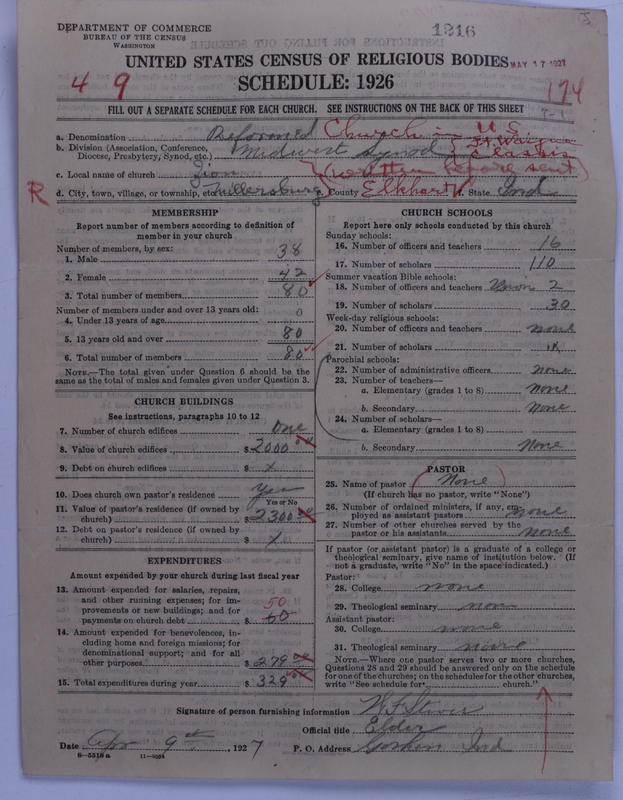 DEPARTMENT OF COMMERCE
BUREAU OF THE CENSUS
WASHINGTON
1216
UNITED STATES CENSUS OF RELIGIOUS BODIES
MAY 17 1927
4 9
SCHEDULE: 1926
174
FILL OUT A SEPARATE SCHEDULE FOR EACH CHURCH. SEE INSTRUCTIONS ON THE BACK OF THIS SHEET
T-1
a. Denomination Reformed Church in U.S.
b. Division (Association, Conference, Diocese, Presbytery, Synod, etc.) Midwest Synod Ft. Wayne Classis
c. Local name of church Zion (written before sent)
R
d. City, town, village, or township, etc. Millersburg County Elkhart State Ind
MEMBERSHIP
Report number of members according to definition of
member in your church
Number of members, by sex:
1. Male 38
2. Female 42
3. Total number of members 80
Number of members under and over 13 years old:
4. Under 13 years of age 0
5. 13 years old and over 80
6. Total number of members 80
NOTE.—The total given under Question 6 should be the
same as the total of males and females given under Question 3.
CHURCH BUILDINGS
See instructions, paragraphs 10 to 12
7. Number of church edifices one
8. Value of church edifices $ 2000
9. Debt on church edifices $ x
10. Does church own pastor's residence Yes
Yes or No
11. Value of pastor's residence (if owned by
church) $ 2300
12. Debt on pastor's residence (if owned by
church) $ x
EXPENDITURES
Amount expended by your church during last fiscal year
13. Amount expended for salaries, repairs,
and other running expenses; for im-
provements or new buildings; and for
payments on church debt $ 60 50
14. Amount expended for benevolences, in-
cluding home and foreign missions; for
denominational support; and for all
other purposes $ 279
15. Total expenditures during year $ 329
CHURCH SCHOOLS
Report here only schools conducted by this church
Sunday schools:
16. Number of officers and teachers 16
17. Number of scholars 110
Summer vacation Bible schools:
18. Number of officers and teachers Union 2
19. Number of scholars 30
Week-day religious schools:
20. Number of officers and teachers none
21. Number of scholars
Parochial schools:
22. Number of administrative officers none
23. Number of teachers—
a. Elementary (grades 1 to 8) None
b. Secondary None
24. Number of scholars—
a. Elementary (grades 1 to 8)
b. Secondary None
PASTOR
25. Name of pastor (None)
(If church has no pastor, write "None")
26. Number of ordained ministers, if any, em-
ployed as assistant pastors none
27. Number of other churches served by the
pastor or his assistants none
If pastor (or assistant pastor) is a graduate of a college or
theological seminary, give name of institution below. (If
not a graduate, write "No" in the space indicated.)
Pastor:
28. College none
29. Theological seminary non
Assistant pastor:
30. College none
31. Theological seminary none
NOTE.—Where one pastor serves two or more churches,
Questions 28 and 29 should be answered only on the schedule
for one of the churches; on the schedules for the other churches,
write "See schedule for church."
Signature of person furnishing information
Official title Elder
Date Apr 9th, 1927
P. O. Address Goshen Ind
8—5518 a 11—9024